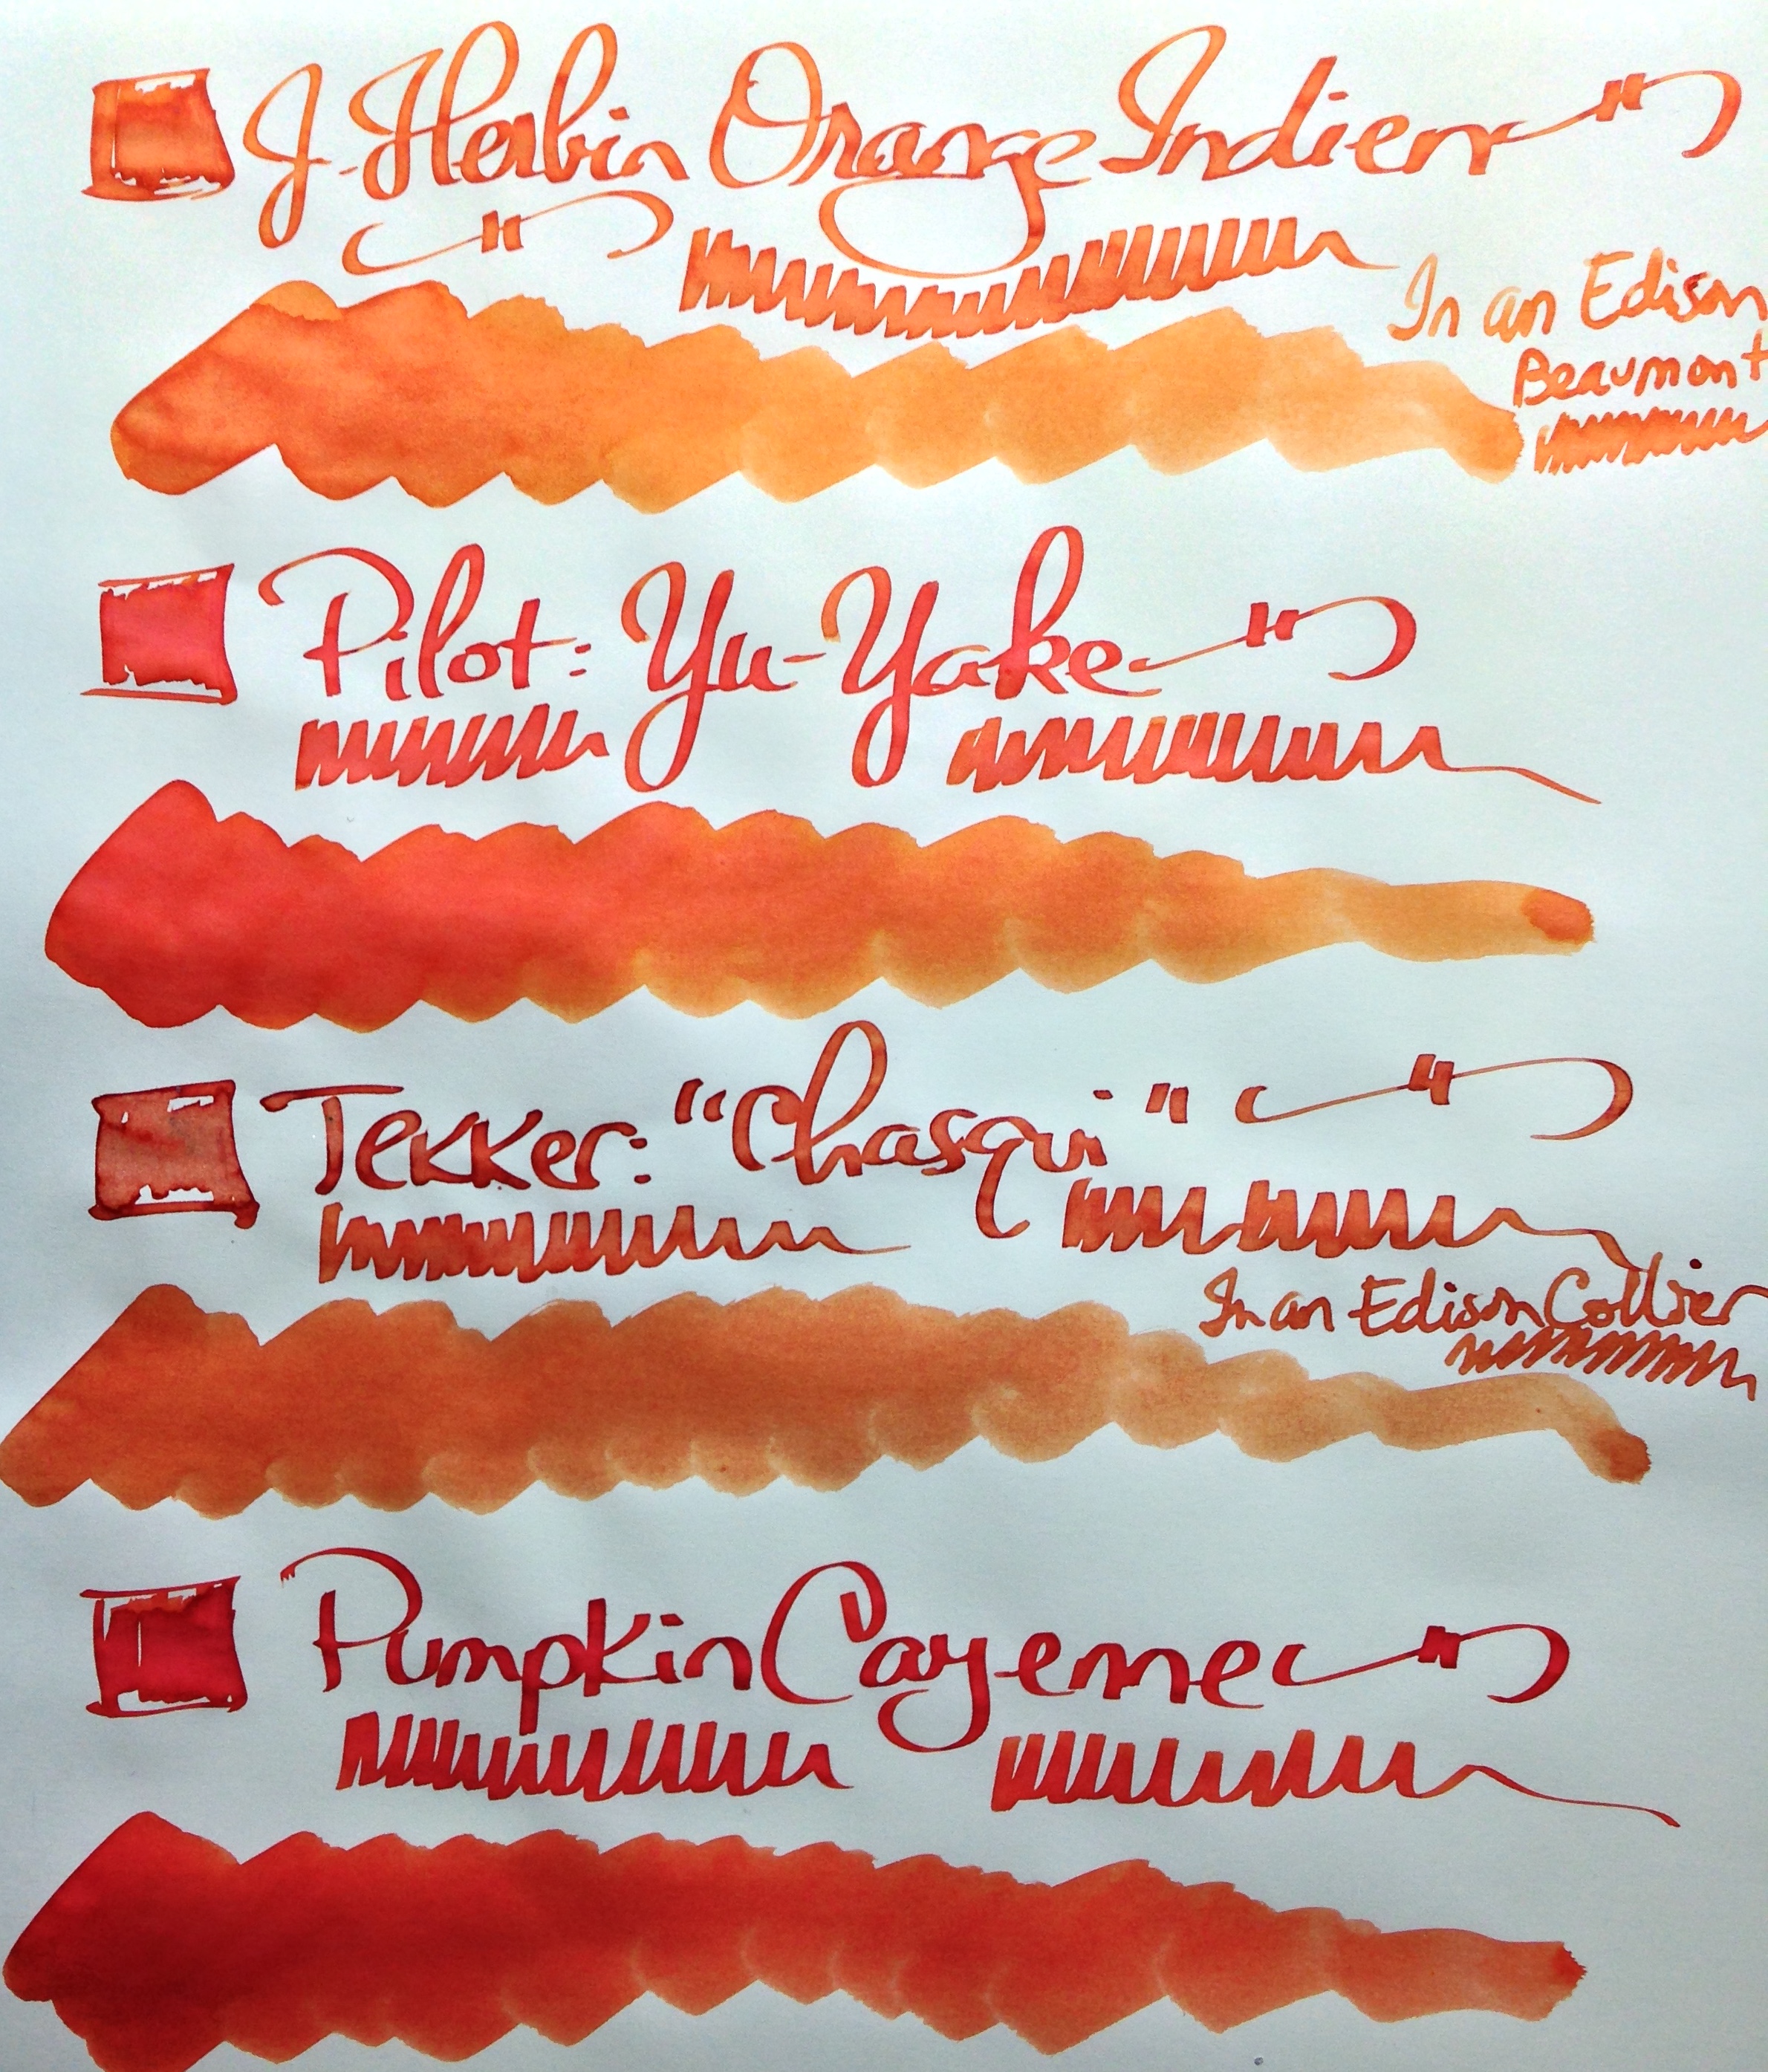 J. Herbin Orange Indien
In an Edison
Beaumont
Pilot: Yu-Yake
Tekker: "Chasqui"
In an Edison Collier
Pumpkin Cayenne